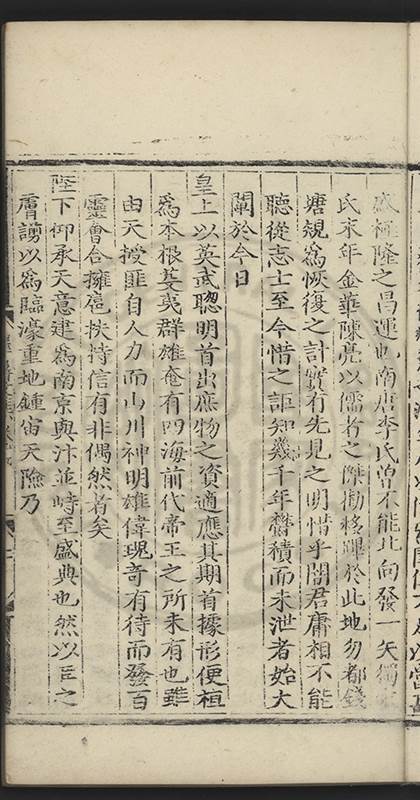 盛福隆之昌運也南唐李氏曾不能北向發一矢獨
氏末年金華陳亮以儒者之傑勸移蹕於此地勿都錢
塘規為恢復之計實有先見之明惜乎闇君庸相不能
聽從志士至今惜之詎知幾千年鬱積而未泄者始大
闡於今日
皇上以英武聦明首出庶物之資適應其期首據形便植
為本根芟夷群雄奄有四海前代帝王之所未有也雖
由天授匪自人力而山川神明雄偉瑰竒有待而發百
靈會合擁扈扶持信有非偶然者矣
陛下仰承天意建為南京與汴並峙至盛典也然以臣之
膚謭以為臨濠重地鍾宙天險乃